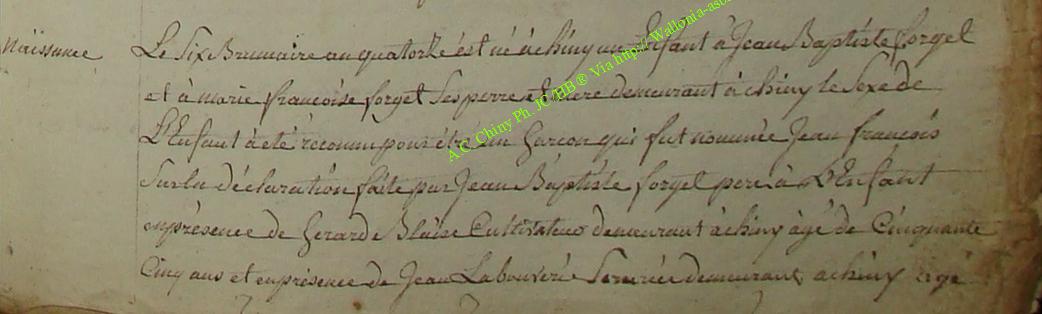 Naissance
Le Six Brumaire an quatorze est né à chiny un Enfant à Jean Baptiste forget
et à marie francoise forget Ses perre et mere demeurant à chiny le Sexe de
L'Enfant à eté reconnu pour être un Garcon qui fut nommée Jean francois
Sur la déclaration faite par Jean Baptiste forget pere à L'Enfant
enprésence de Gerard Blaise Cultivateur demeurant à chiny âgé de Cinquante
Cinq ans et enprésence de Jean Labouverie demeurant a chiny agé
A.C. Chiny Ph. JC/HB® Via http:// Wallonia-asb